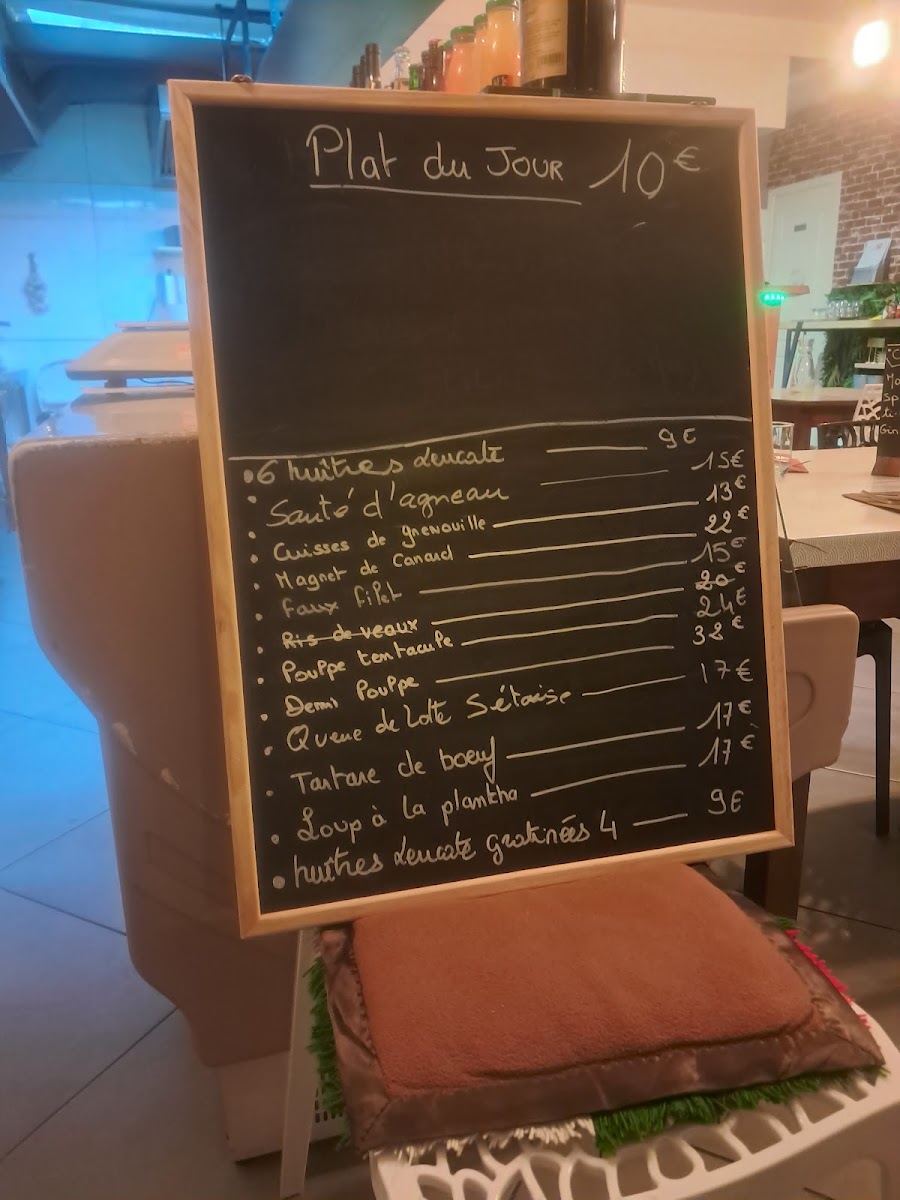 Plat du JOUR 10€
• 6 huîtres Leucate 9€
• Sauté d'agneau 15€
• Cuisses de grenouille 13€
• Magret de Canard 22€
• Faux filet 15€
• Ris de veaux 20€
• Poulpe tentacule 24€
• Demi Poulpe 38€
• Queue de Lotte Sétoise 17€
• Tartare de boeuf 17€
• Loup à la plancha 17€
• huîtres Leucate gratinées 4 9€